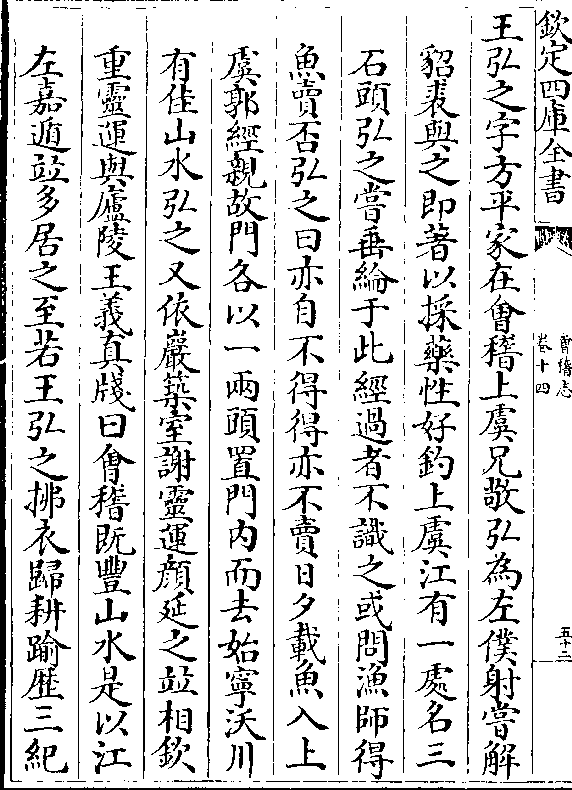 欽定四庫全書
會稽志
卷十四
五十二
王弘之字方平家在會稽上虞兄敬弘為左僕射嘗解
貂裘與之即著以採藥性好釣上虞江有一處名三
石頭弘之嘗垂綸于此經過者不識之或問漁師得
魚賣否弘之曰亦自不得得亦不賣日夕載魚入上
虞郭經親故門各以一兩頭置門内而去始寧沃川
有佳山水弘之又依巖築室謝靈運顔延之竝相欽
重靈運與廬陵王義真牋曰會稽既豐山水是以江
左嘉遁竝多居之至若王弘之拂衣歸耕踰歴三紀